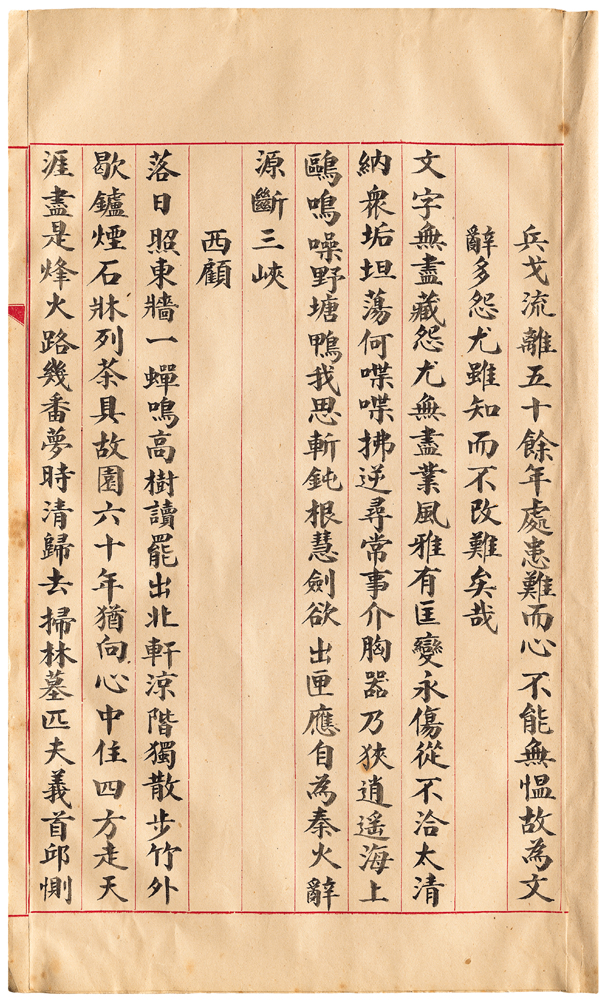 兵戈流離五十餘年處患難而心不能無愠故為文
辭多怨尤雖知而不改難矣哉
文字無盡藏怨尤無盡業風雅有匡變永傷從不洽太清
納衆垢坦蕩何喋喋拂逆尋常事介胸器乃狹逍遙海上
鷗鳴噪野塘鴨我思斬鈍根慧劍欲出匣應自為秦火辭
源斷三峽
西顧
落日照東牆一蟬鳴高樹讀罷出北軒涼階獨散步竹外
歇鑪煙石牀列茶具故園六十年猶向心中住四方走天
涯盡是烽火路幾番夢時清歸去掃林墓匹夫義首邱惻